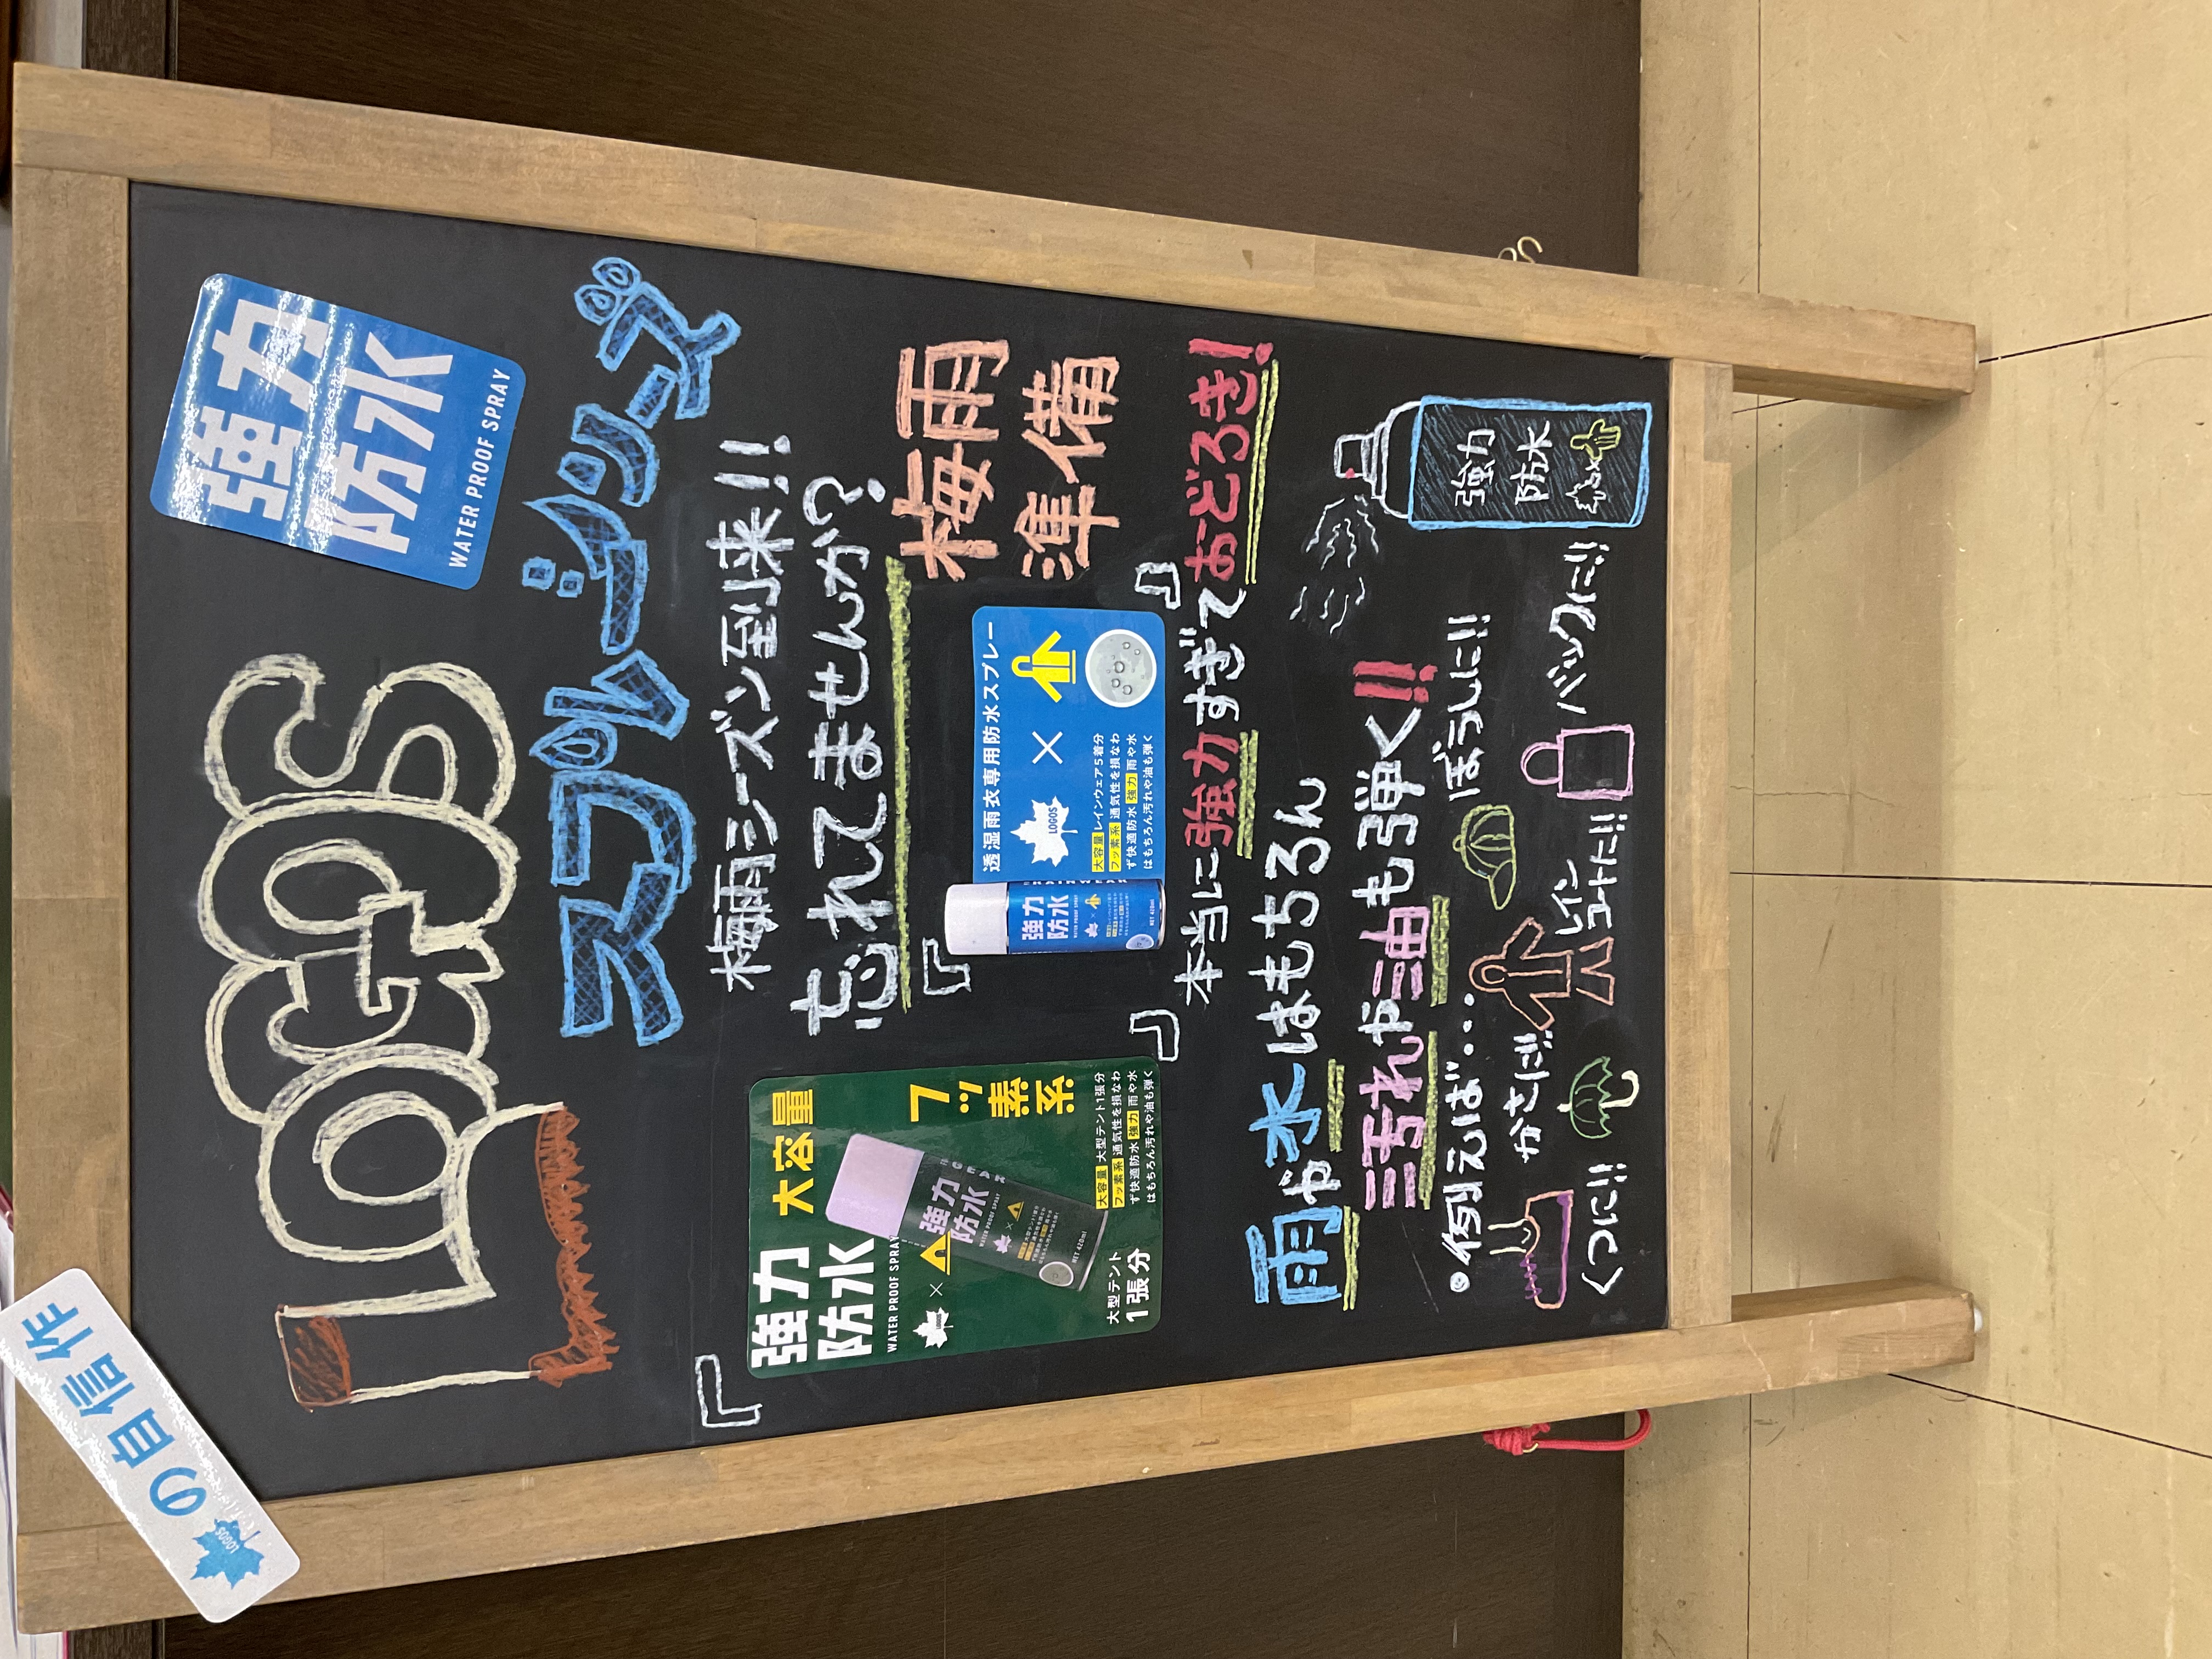 LOGOSの自信作
LOGOS
強力
防水
WATER PROOF SPRAY
スプレーシリーズ
『
梅雨シーズン到来!!
忘れてませんか?
梅雨
準備
強力
防水
WATER PROOF SPRAY
大容量
×
フッ
素
系
強力
防水
WATER PROOF SPRAY
NET 420ml
大型テント
1張分
大容量 大型テント1張分
フッ素系 通気性を損なわ
ず快適防水 強力 雨や水
はもちろん汚れや油も弾く
』
『
強力
防水
WATER PROOF SPRAY
NET 420ml
透湿雨衣専用防水スプレー
LOGOS
×
大容量 レインウェア5着分
フッ素系 通気性を損なわ
ず快適防水 強力 雨や水
はもちろん汚れや油も弾く
』
本当に強力すぎておどろき!
雨や水はもちろん
汚れや油も弾く!!
•例えば…
くつに!!
かさに!!
レイン
コートに!!
ぼうしに!!
バックに!!
強力
防水
×